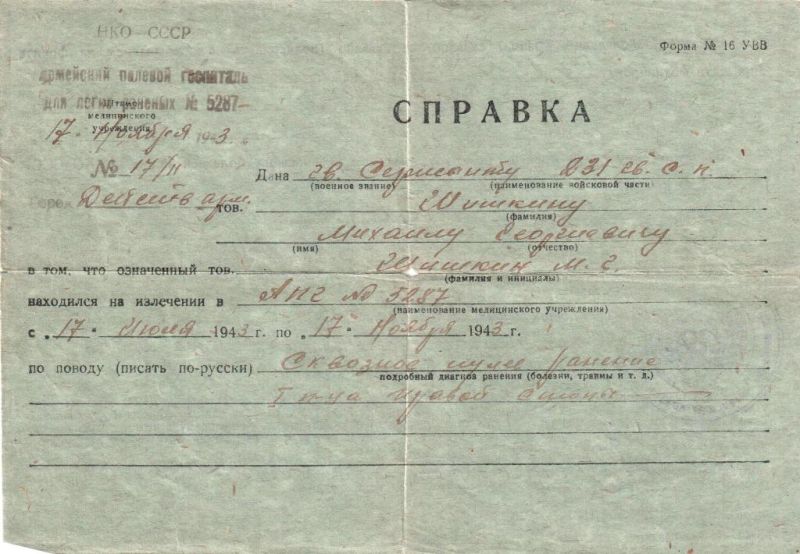 НКО СССР
Форма № 16 УВВ
армейский полевой госпиталь
для легко раненых № 5287
Штамп
медицинского
учреждения
СПРАВКА
17 Ноября 1943 г.
№ 17/11
Дана гв. Сержанту 231 гв. с. п.
(военное звание) (наименование войсковой части)
Действ арм.
тов. Шишкину
(фамилия)
Михаилу Георгиевичу
(имя) (отчество)
в том, что означенный тов. Шишкин М. Г.
(фамилия и инициалы)
находился на излечении в № 5287
(наименование медицинского учреждения)
с „17" Июля 1943 г. по „17" Ноября 1943 г.
по поводу (писать по-русски) Сквозное пулев ранение
подробный диагноз ранения (болезни, травмы и т. д.)
I п-ца правой стопы